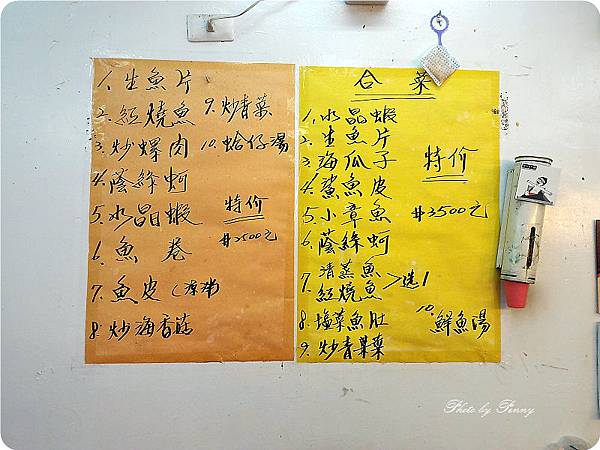 1. 生魚片
2. 紅燒魚
3. 炒螺肉
4. 蔭絲蚵
5. 水晶蝦
6. 魚卷
7. 魚皮(涼拌)
8. 炒海香菇
9. 炒青菜
10. 蛤仔湯
特价
#3500元
合菜
1. 水晶蝦
2. 生魚片
3. 海瓜子
4. 鯊魚皮
5. 小章魚
6. 蔭絲蚵
7. 清蒸魚
紅燒魚 >选1
8. 塩菜魚肚
9. 炒青菜
10. 鮮魚湯
特价
#3500元
Photo by Penny